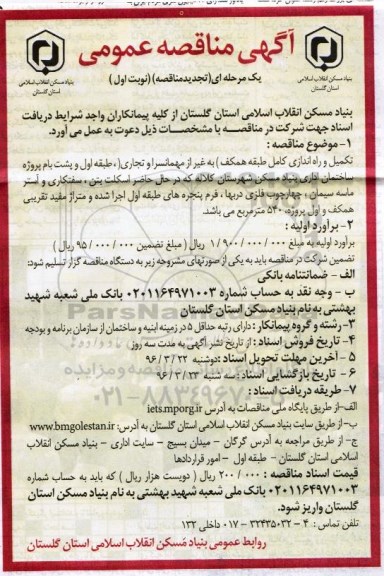 آگهی مناقصه عمومی
یک مرحله ای(تجدیدمناقصه) (نوبت اول )
بنیاد مسکن انقلاب اسلامی
استان گلستان
بنیاد مسکن انقلاب اسلامی
استان گلستان
بنیاد مسکن انقلاب اسلامی استان گلستان از کلیه پیمانکاران واجد شرایط دریافت
اسناد جهت شرکت در مناقصه با مشخصات ذیل دعوت به عمل می آورد.
۱-موضوع مناقصه :
تکمیل و راه اندازی کامل طبقه همکف ) به غیر از مهمانسرا و تجاری( ، طبقه اول و پشت بام پروژه
ساختمان اداری بنیاد مسکن شهرستان کلاله که در حال حاضر اسکلت بتن ، سفتکاری و آستر
ماسه سیمان ، چهارچوب فلزی دربها ، فرم پنجره های طبقه اول اجرا شده و متراژ مفید تقریبی
همکف و اول پروژه، ۵۴۰ مترمربع می باشد.
۲- برآورد اولیه :
برآورد اولیه به مبلغ ۱/۹۰۰/۰۰۰/۰۰۰ ریال ( مبلغ تضمین ۹۵/۰۰۰/۰۰۰ ریال )
تضمین شرکت در مناقصه باید به یکی از صورتهای مشروحه زیر به دستگاه مناقصه گزار تسلیم شود:
الف - ضمانتنامه بانکی
ب - وجه نقد به حساب شماره ۰۲۰۱۱۶۴۹۷۱۰۰۳ بانک ملی شعبه شهید
بهشتی به نام بنیاد مسکن استان گلستان
۳-رشته و گروه پیمانکار : دارای رتبه حداقل ۵ در زمینه ابنیه و ساختمان از سازمان برنامه و بودجه
۴- تاریخ فروش اسناد : از تاریخ نشر آگهی به مدت سه روز
۵ - آخرین مهلت تحویل اسناد :دوشنبه ۹۶/۳/۲۲
۶- تاریخ بازگشایی اسناد :سه شنبه ۹۶/۳/۲۳
۷- طریقه دریافت اسناد :
الف-از طریق پایگاه ملی مناقصات به آدرس iets.mporg.ir
ب-از طریق سایت بنیاد مسکن انقلاب اسلامی استان گلستان به آدرس: www.bmgolestan.ir
ج- از طریق مراجعه به آدرس گرگان - میدان بسیج - سایت اداری - بنیاد مسکن انقلاب
اسلامی استان گلستان - طبقه اول - امور قراردادها
قیمت اسناد مناقصه : ۲۰۰/۰۰۰ ریال ( دویست هزار ریال ) که باید به حساب شماره
۰۲۰۱۱۶۴۹۷۱۰۰۳ بانک ملی شعبه شهید بهشتی به نام بنیاد مسکن استان
گلستان واریز شود.
تلفن تماس : ۴ - ۳۲۴۳۵۰۳۲ - ۰۱۷ داخلی ۱۳۲
روابط عمومی بنیاد مسکن انقلاب اسلامی استان گلستان